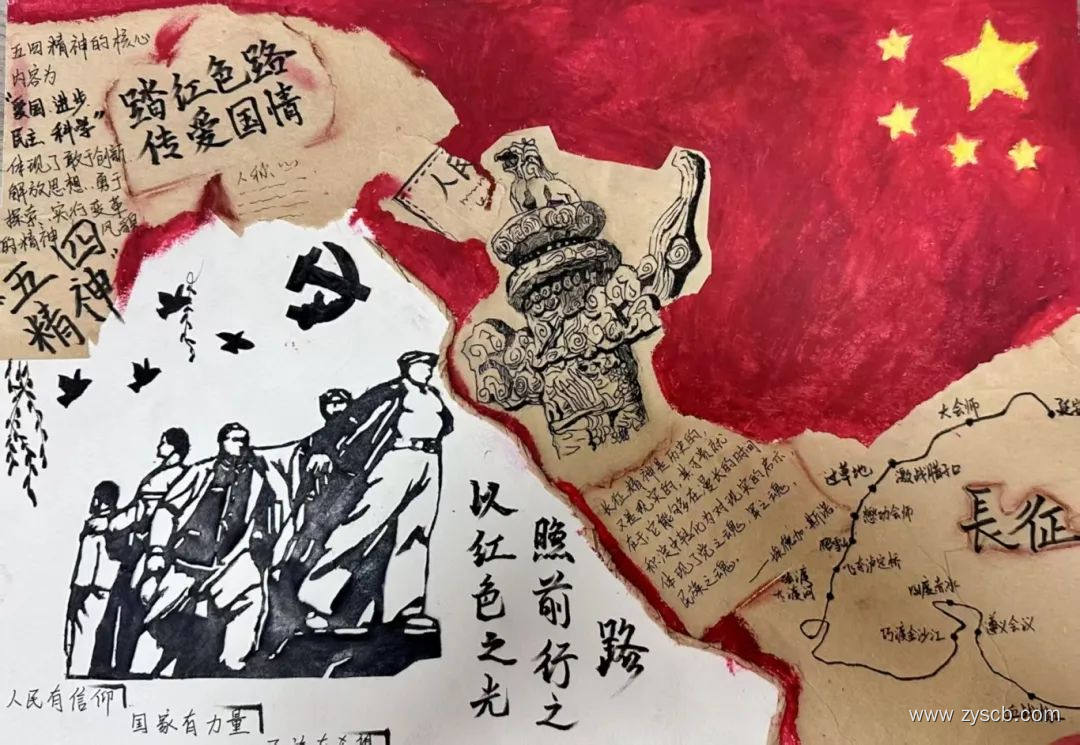 五四精神的核心
内容为
“爱国 进步
民主 科学”
体现了敢于创新
解放思想、勇于
探索、实行变革
的精神风貌
五四
精神
踏红色路
传爱国情
人民
長征精神是历史的
又是现实的,其可贵就
在于它能够在漫长的时间
积淀中转化为对现实的启示
体现党之魂,军之魂,
民族之魂。
大会师
过草地
激战腊子口
懋功会师
飞夺泸定桥
强渡
大渡河
四渡赤水
巧渡金沙江
遵义会议
長征
以红色之光
照前行之
路
人民有信仰
国家有力量
www.zyscb.com